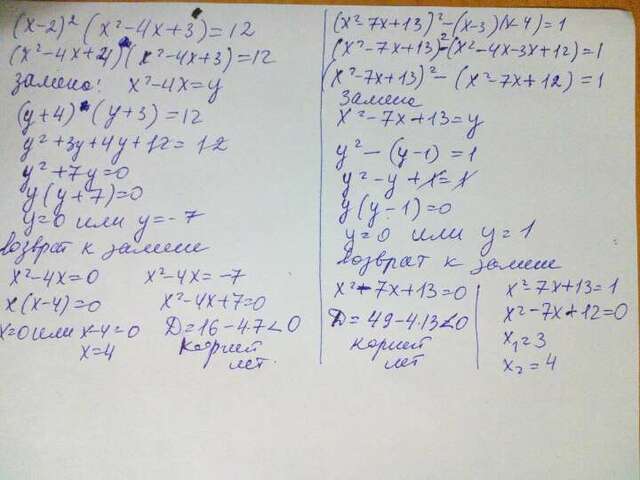 (x-2)² (x²-4x+3)=12
(x²-4x+4)(x²-4x+3)=12
замена: x²-4x=y
(y+4)·(y+3)=12
y²+3y+4y+12=12
y²+7y=0
y(y+7)=0
y=0 или y=-7
Возврат к замене
x²-4x=0 x²-4x=-7
x(x-4)=0 x²-4x+7=0
x=0 или x-4=0 D=16-4·7<0
x=4 корней
нет
(x²-7x+13)²-(x-3)(x-4)=1
(x²-7x+13)²-(x²-4x-3x+12)=1
(x²-7x+13)²-(x²-7x+12)=1
Замена
x²-7x+13=y
y²-(y-1)=1
y²-y+1=1
y(y-1)=0
y=0 или y=1
Возврат к замене
x²-7x+13=0 x²-7x+13=1
D=49-4·13<0 x²-7x+12=0
корней x₁=3
нет x₂=4